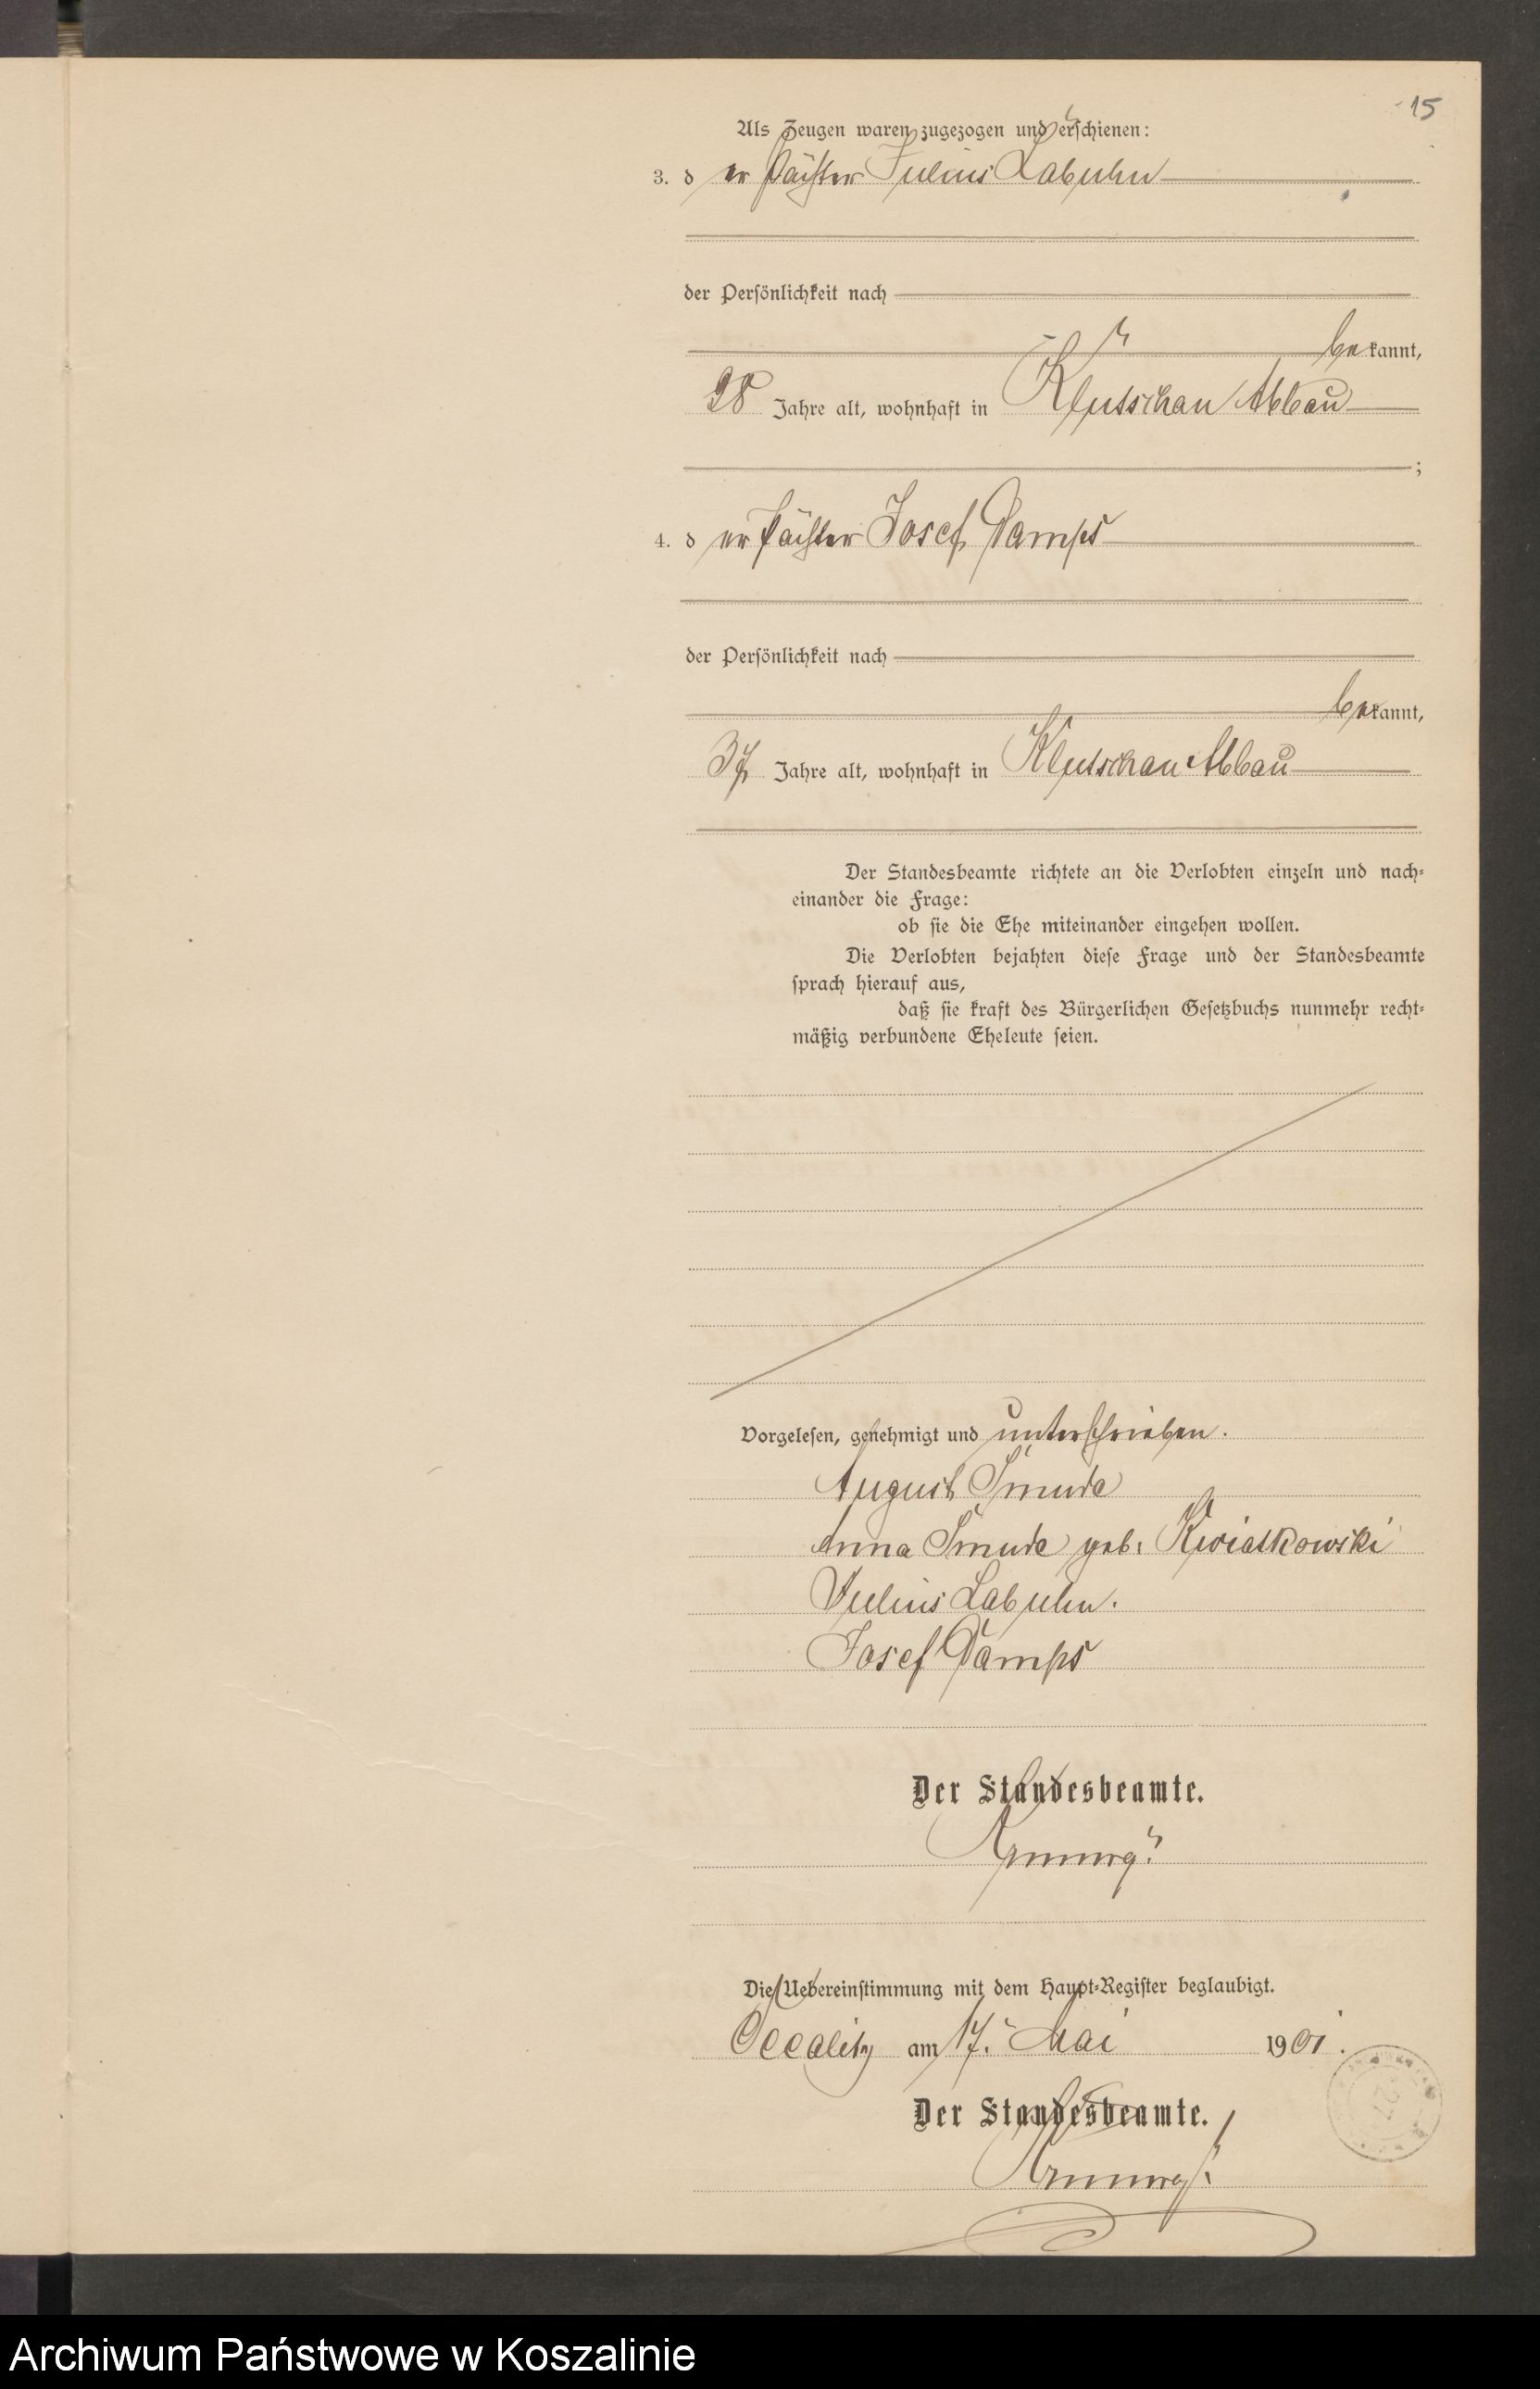 15
Als Zeugen waren zugezogen und erschienen:
3. d er Pächter Julius Labuhn
der Persönlichkeit nach
bekannt,
28 Jahre alt, wohnhaft in Klutschau Abbau
;
4. d er Pächter Josef Damps
der Persönlichkeit nach
bekannt,
37 Jahre alt, wohnhaft in Klutschau Abbau
Der Standesbeamte richtete an die Verlobten einzeln und nach-
einander die Frage:
ob sie die Ehe miteinander eingehen wollen.
Die Verlobten bejahten diese Frage und der Standesbeamte
sprach hierauf aus,
daß sie kraft des Bürgerlichen Gesetzbuchs nunmehr recht-
mäßig verbundene Eheleute seien.
Vorgelesen, genehmigt und unterschrieben.
August Smuda
Anna Smuda geb. Kwiatkowski
Julius Labuhn.
Josef Damps
Der Standesbeamte.
Die Uebereinstimmung mit dem Haupt-Register beglaubigt.
Occalitz am 17. Mai 1901.
Der Standesbeamte.
Archiwum Państwowe w Koszalinie